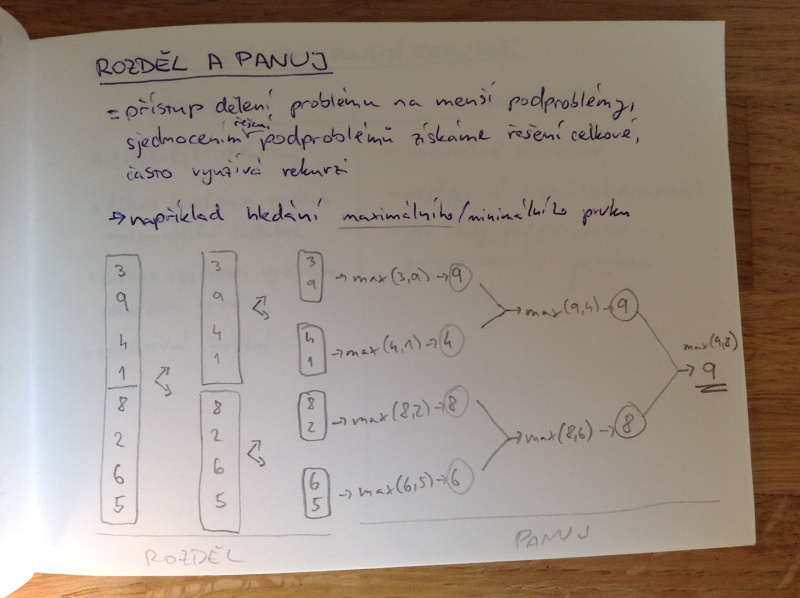 ROZDĚL A PANUJ
= přístup dělení problému na menší podproblémy,
sjednocením řešení podproblémů získáme řešení celkové,
často využívá rekurzi
→ například hledání maximálního/minimálního prvku
3 9 4 1 8 2 6 5
3 9 4 1
8 2 6 5
3 9 → max(3,9) → 9
4 1 → max(4,1) → 4
8 2 → max(8,2) → 8
6 5 → max(6,5) → 6
max(9,4) → 9
max(8,6) → 8
max(9,8)
→ 9
ROZDĚL
PANUJ